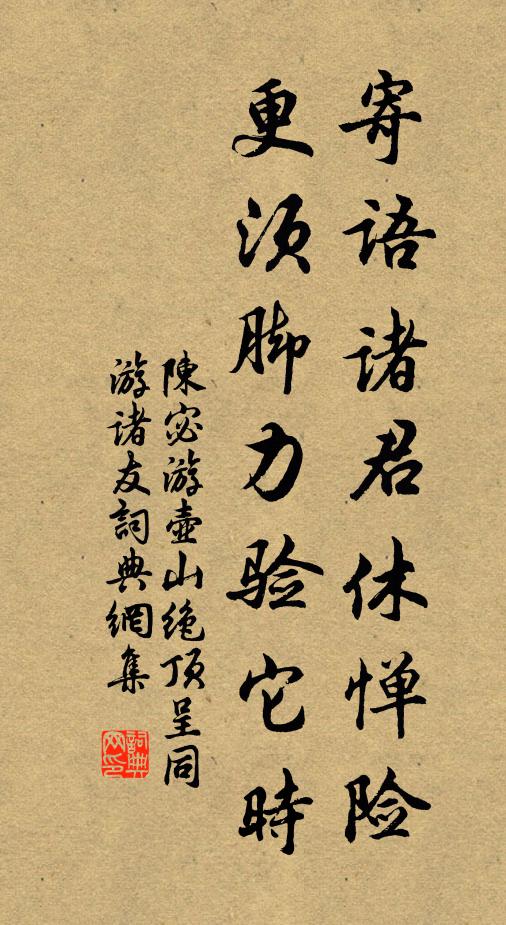 寄语诸君休惮险
更须脚力验它時
陳宓游壺山绝顶呈同
游诸友詞典網集
詞典网印